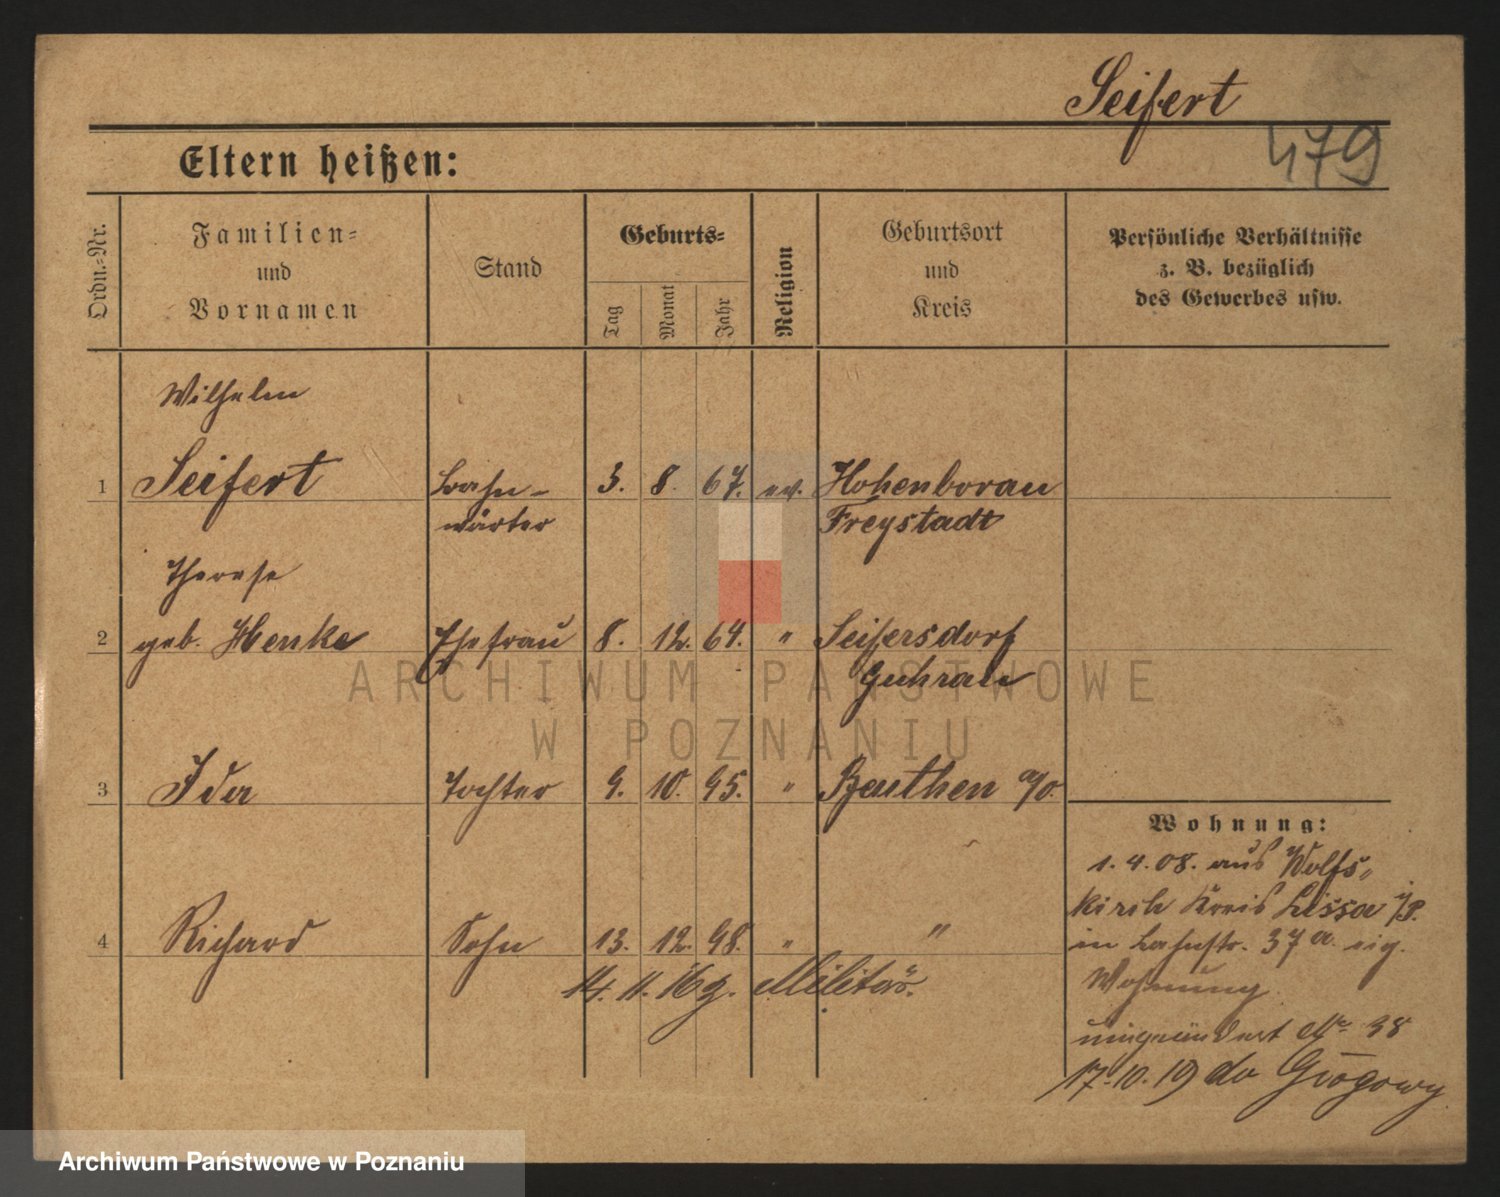 Seifert
479
Eltern heißen:
Ordn.-Nr.
Familien-
und
Vornamen
Stand
Geburts-
Tag
Monat
Jahr
Religion
Geburtsort
und
Kreis
Persönliche Verhältnisse
z. B. bezüglich
des Gewerbes usw.
Wilhelm
1 Seifert Bahn- 3. 8. 67. ev. Hohenborau
wärter Freystadt
Therese
2 geb. Henke Ehefrau 8. 12. 64. " Seifersdorf
Guhrau
3 Ida Tochter 9. 10. 95. " Beuthen a/O.
4 Richard Sohn 13. 12. 98. " "
14. 11. 16 g. Militär.
Wohnung:
1. 4. 08. aus Wolfs-
kirch Kreis Lissa i/P.
in Bahnstr. 37a. eig.
Wohnung.
38
17.10.19 do Głogowy
ARCHIWUM PAŃSTWOWE
W POZNANIU
Archiwum Państwowe w Poznaniu